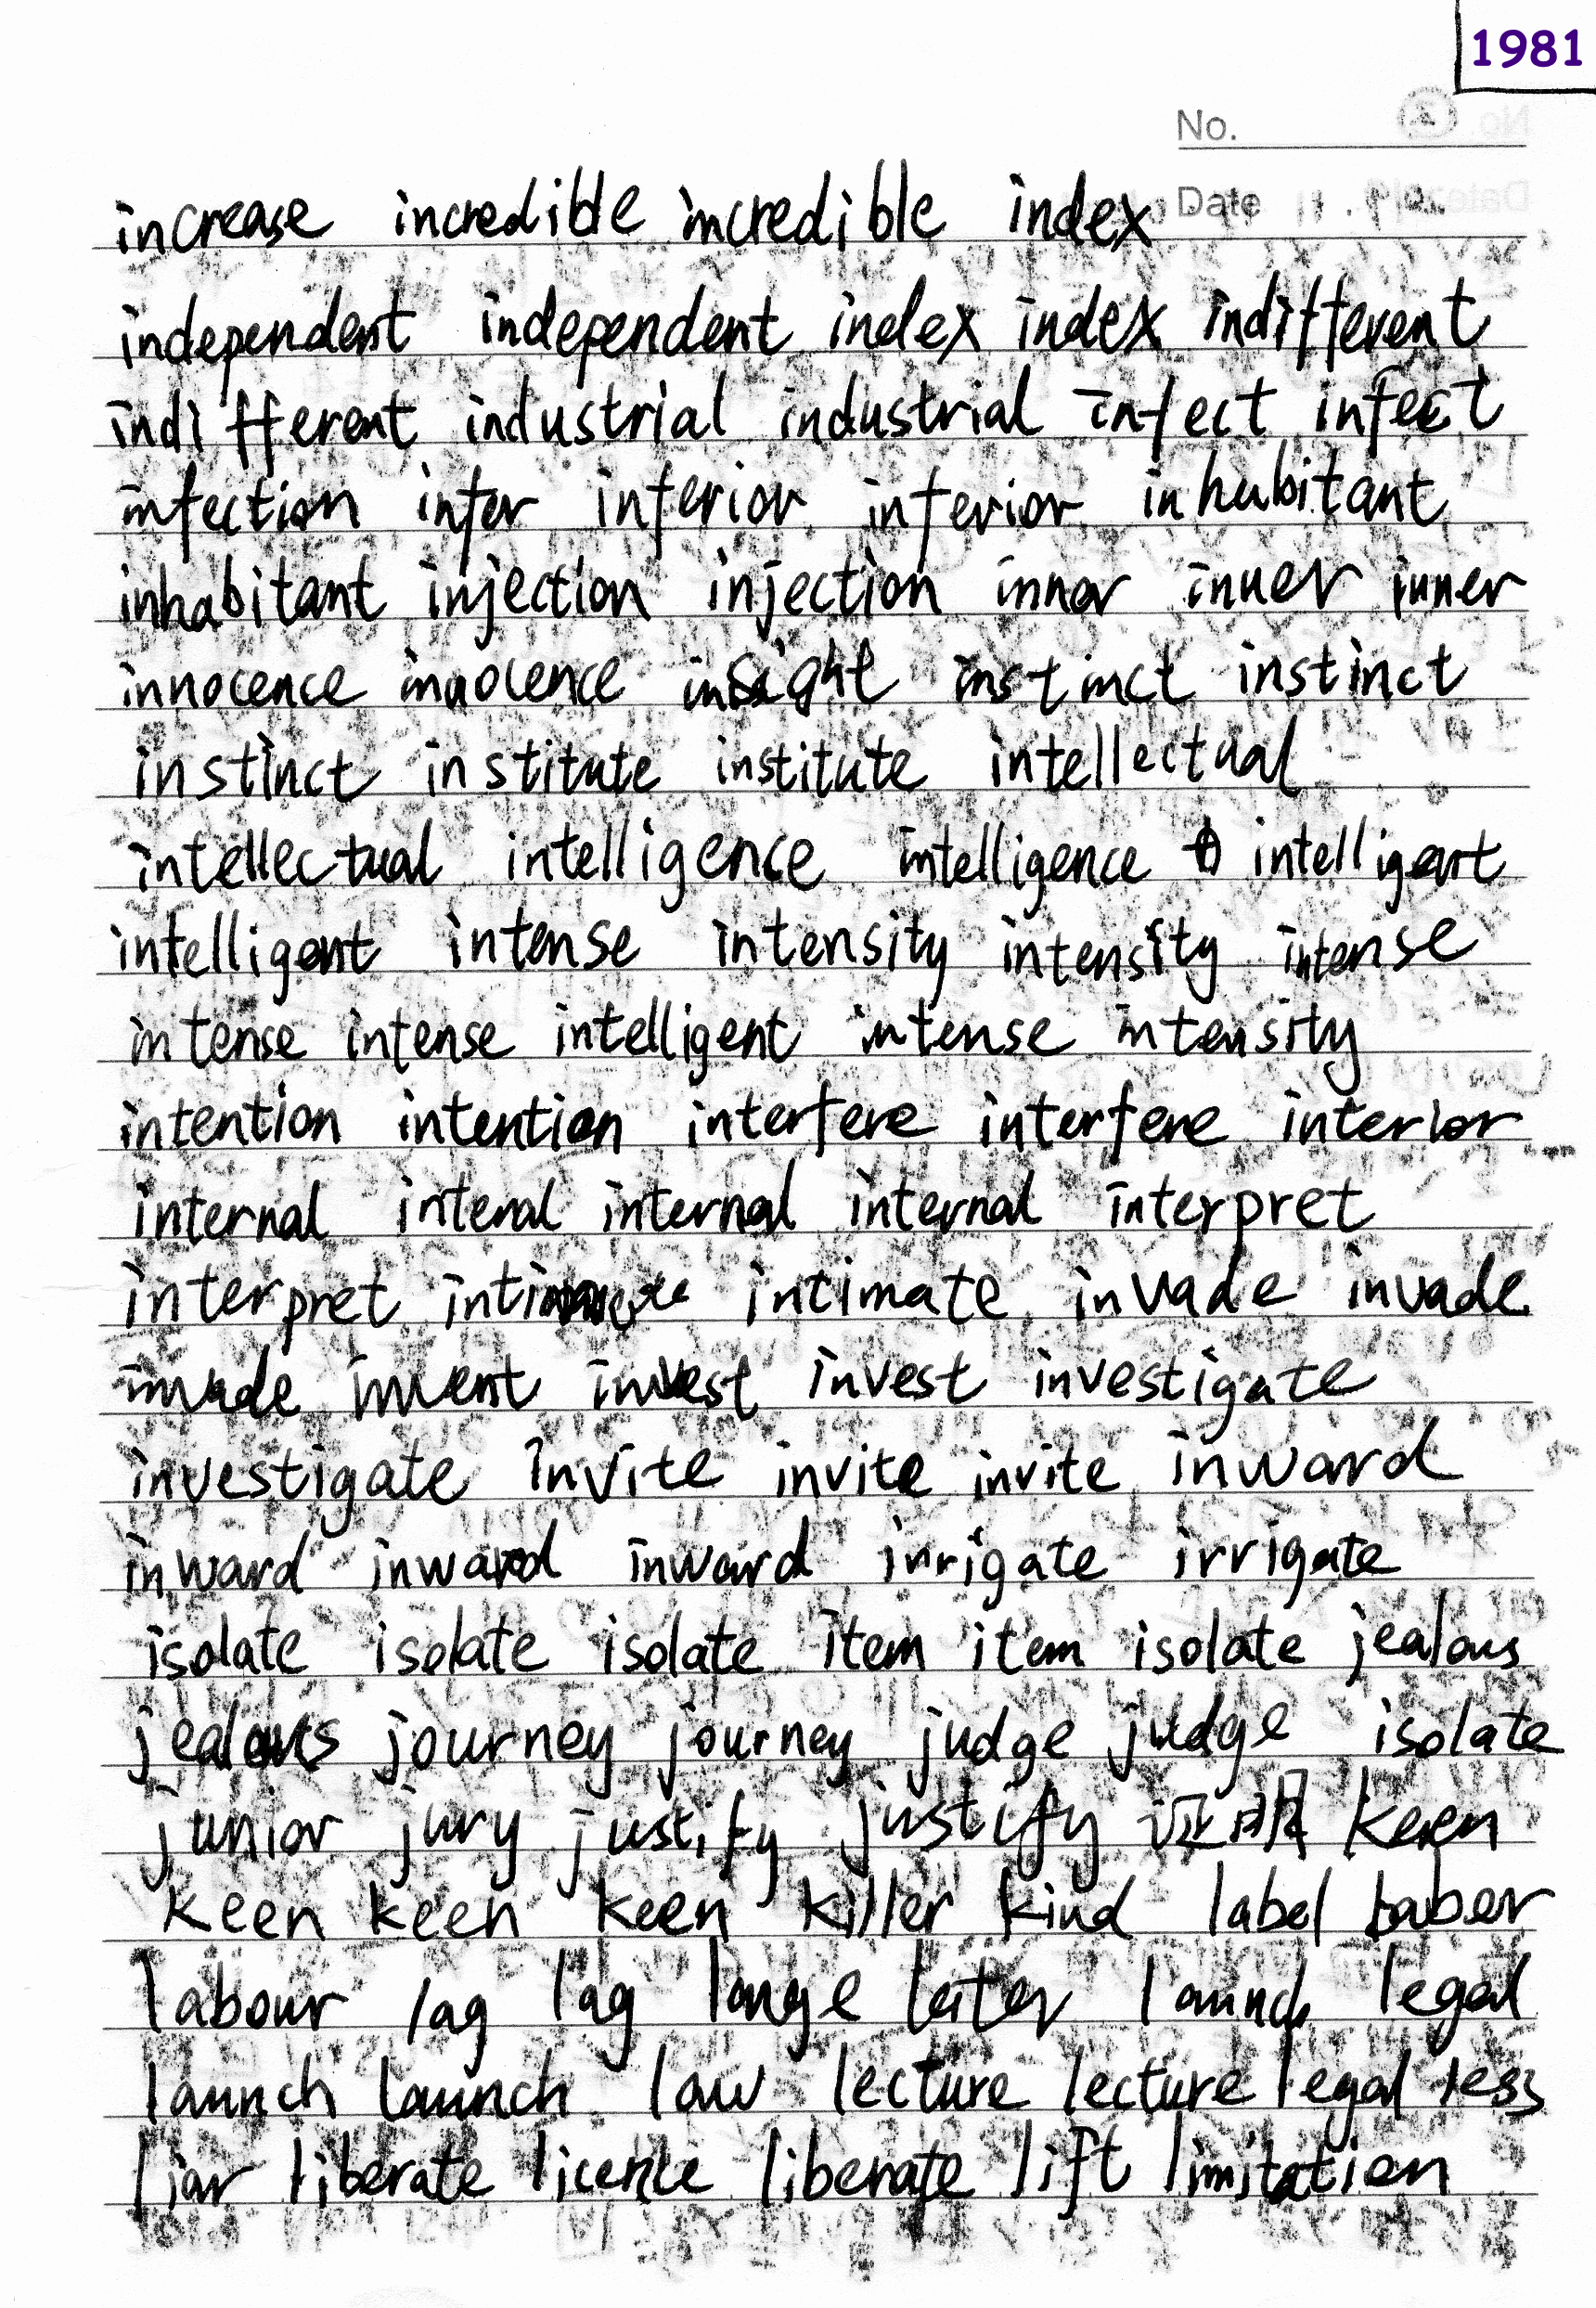 1981
No.
Date
increase incredible incredible index
independent independent index index indifferent
indifferent industrial industrial infect infect
infection infer inferior inferior inhabitant
inhabitant injection injection inner inner inner
innocence innocence insight instinct instinct
instinct institute institute intellectual
intellectual intelligence intelligence intelligent
intelligent intense intensity intensity intense
intense intense intelligent intense intensity
intention intention interfere interfere interior
internal interal internal internal interpret
interpret intimate invade invade
invade invent invest invest investigate
investigate invite invite invite inward
inward inward inward irrigate irrigate
isolate isolate isolate item item isolate jealous
jealous journey journey judge judge isolate
junior jury justify justify 证明 keen
keen keen keen killer kind label
labour lag lag large later launch legal
launch launch law lecture lecture legal less
liar liberate licence liberate lift limitation